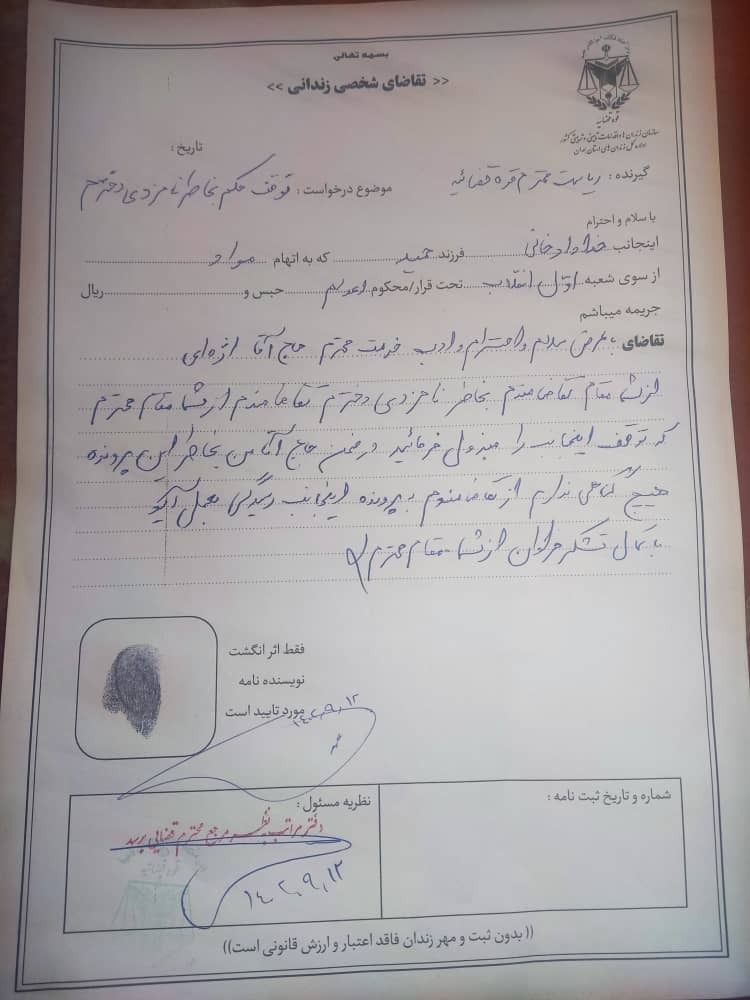 بسمه تعالی
<< تقاضای شخصی زندانی >>
قوه قضائیه
سازمان زندانها و اقدامات تامینی و تربیتی کشور
اداره کل زندان های استان
تاریخ :
گیرنده : ریاست محترم قوه قضائیه
موضوع درخواست : توقف حکم بخاطر نامزدی دخترم
با سلام و احترام
اینجانب خداداد خانی فرزند حمید که به اتهام مواد
از سوی شعبه اول انقلاب تحت قرار/محکوم اعدام حبس و ریال
جریمه میباشم
تقاضای با عرض سلام و احترام و ادب خدمت محترم حاج آقا اژه‌ای
از شما مقام تقاضامندم بخاطر نامزدی دخترم تقاضامندم از شما مقام محترم
که توقف اینجانب را مبذول فرمائید درضمن حاج آقا من بخاطر این پرونده
هیچ گناهی ندارم از تقاضامندم به پرونده اینجانب رسیدگی بعمل آید
با کمال تشکر فراوان از شما مقام محترم
فقط اثر انگشت
نویسنده نامه
مورد تایید است
۱۴۰۲,۹,۱۲
شماره و تاریخ ثبت نامه :
نظریه مسئول :
دفتر مراتب به نظر مرجع محترم قضایی برسد
۱۴۰۲,۹,۱۲
((بدون ثبت و مهر زندان فاقد اعتبار و ارزش قانونی است))